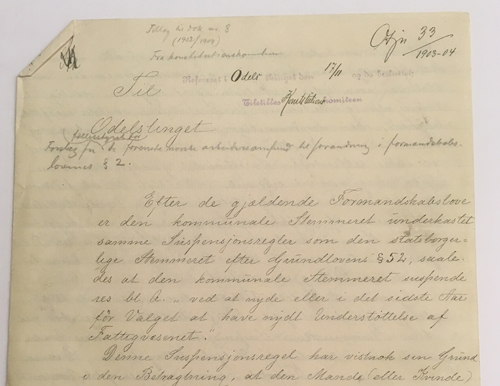 Tillæg til Dok no 8
(1903/1904)
Fra konstitutionskomiteen
33
1903-04
Referert i Odels tinget den 17/11
Til
Tilstilles Konstitutions komiteen
Odelstinget
Forslag fra de forenede norske arbeidersamfund til forandring i formandskabs-
lovenes § 2.
Efter de gjældende Formandskabslove
er den kommunale Stemmeret underkastet
samme Suspensjonsregler som den statsborger-
lige Stemmeret efter Grundlovens § 52, saale-
des at den kommunale Stemmeret suspende
res bl. a. „ved at nyde eller i det sidste Aar
før Valget at have nydt Understøttelse af
Fattigvæsenet".
Denne Suspensjonsregel har vistnok sin Grund
i den Betragtning, at den Mand (eller Kvinde)